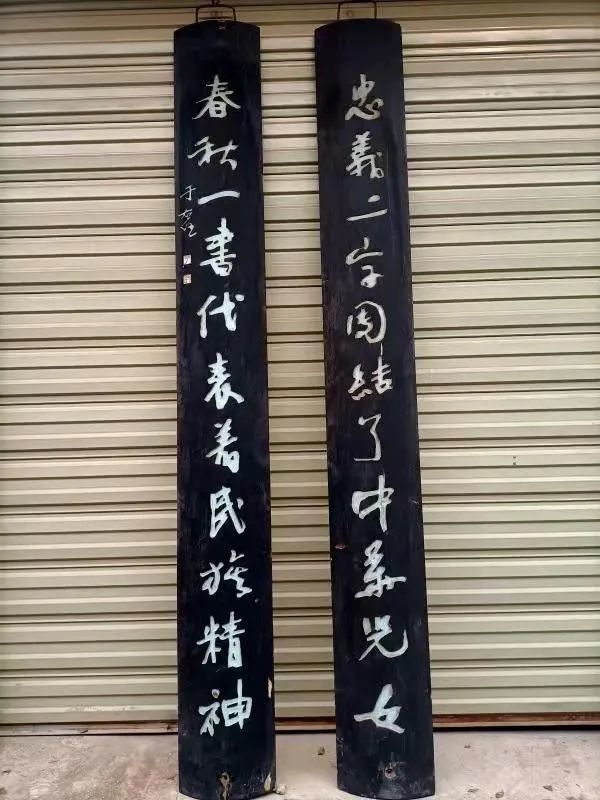 忠義二字團結了中華兒女
春秋一書代表着民族精神
于右任